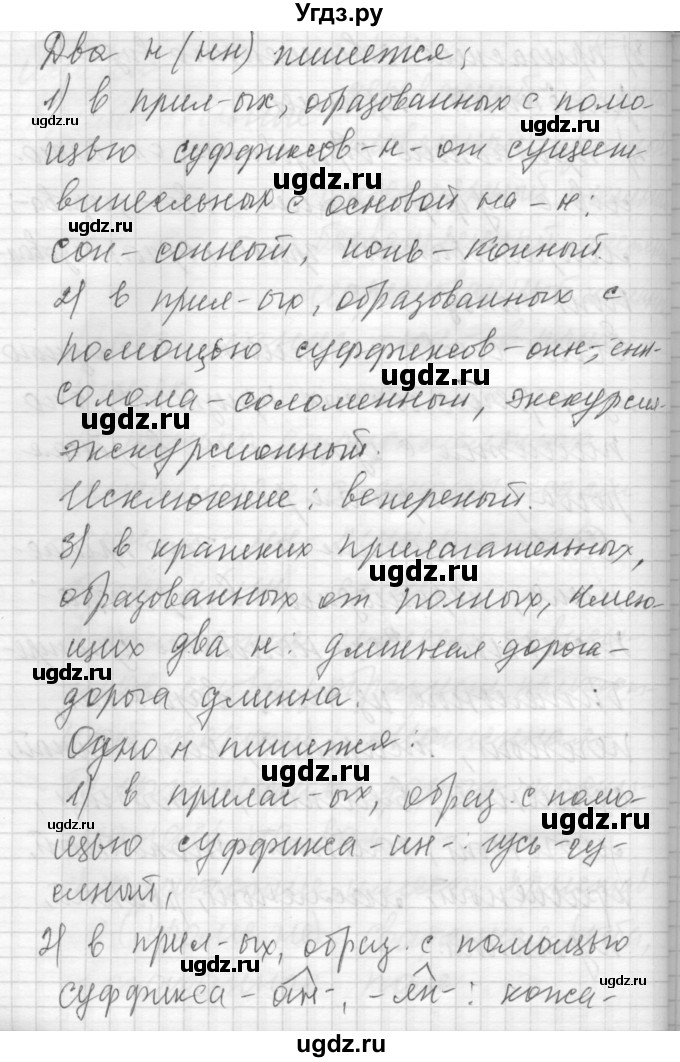 Угдз.ру
Два н (нн) пишется;
1) в прил-ых, образованных с помо-
щью суффиксов -н- от сущест-
вительных с основой на -н:
сон - сонный, конь - конный.
2) в прил-ых, образованных с
помощью суффиксов -онн-, енн-
солома - соломенный, экскурсия-
экскурсионный.
Исключение: ветреный.
3) в кратких прилагательных,
образованных от полных, имею-
щих два н: длинная дорога -
дорога длинна.
Одно н пишется:
1) в прилаг-ых, образ. с помо-
щью суффикса -ин-: гусь-гу-
синый,
2) в прил-ых, образ. с помощью
суффикса -ан-, -ян-: кожа-
ugdz.ru
ugdz.ru
ugdz.ru
ugdz.ru
ugdz.ru
ugdz.ru
ugdz.ru
ugdz.ru
ugdz.ru
ugdz.ru
ugdz.ru
ugdz.ru
ugdz.ru
ugdz.ru